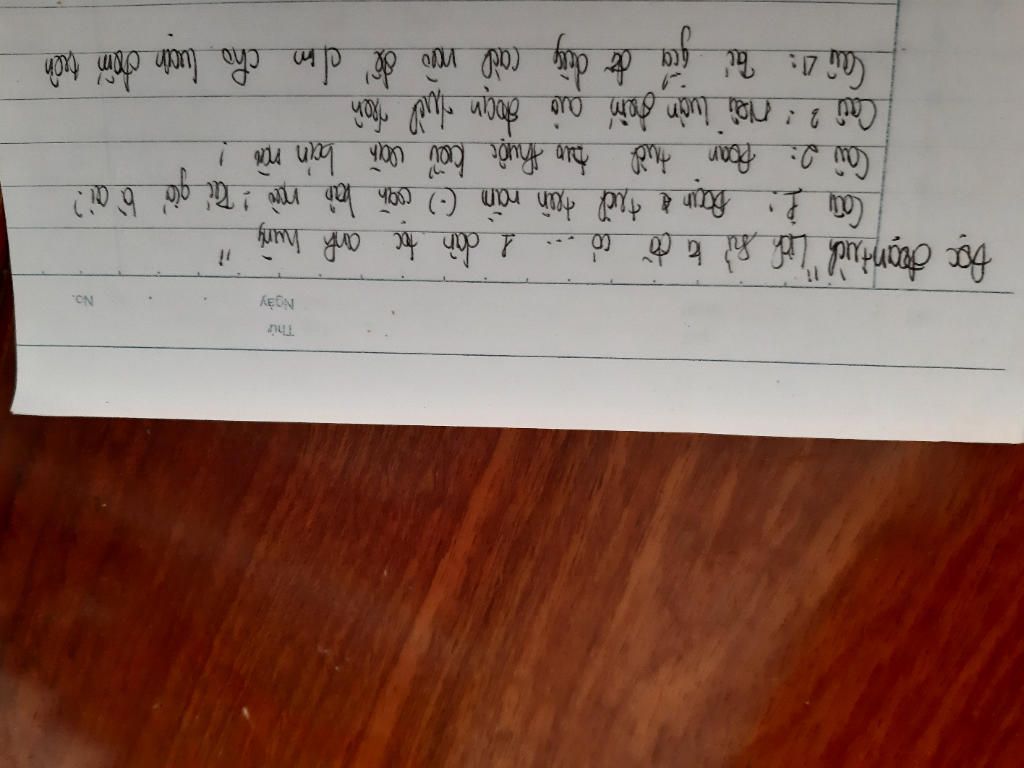 Thứ
Ngày No.
Đọc đoạn trích "Lịch sử ta đã có ... 1 dân tộc anh hùng"
Câu 1: Đoạn trích trên nằm (.) văn bản nào? Tác giả là ai?
Câu 2: Đoạn trích trên thuộc kiểu văn bản nào?
Câu 3: Nêu luận điểm của đoạn trích trên
Câu 4: Tác giả đã dùng cách nào để c/m cho luận điểm trên